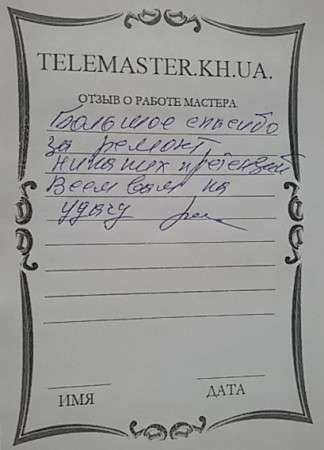 TELEMASTER.KH.UA.
ОТЗЫВ О РАБОТЕ МАСТЕРА
Большое спасибо
за ремонт
никаких претензий
Всем вам на
удачу
ИМЯ
ДАТА